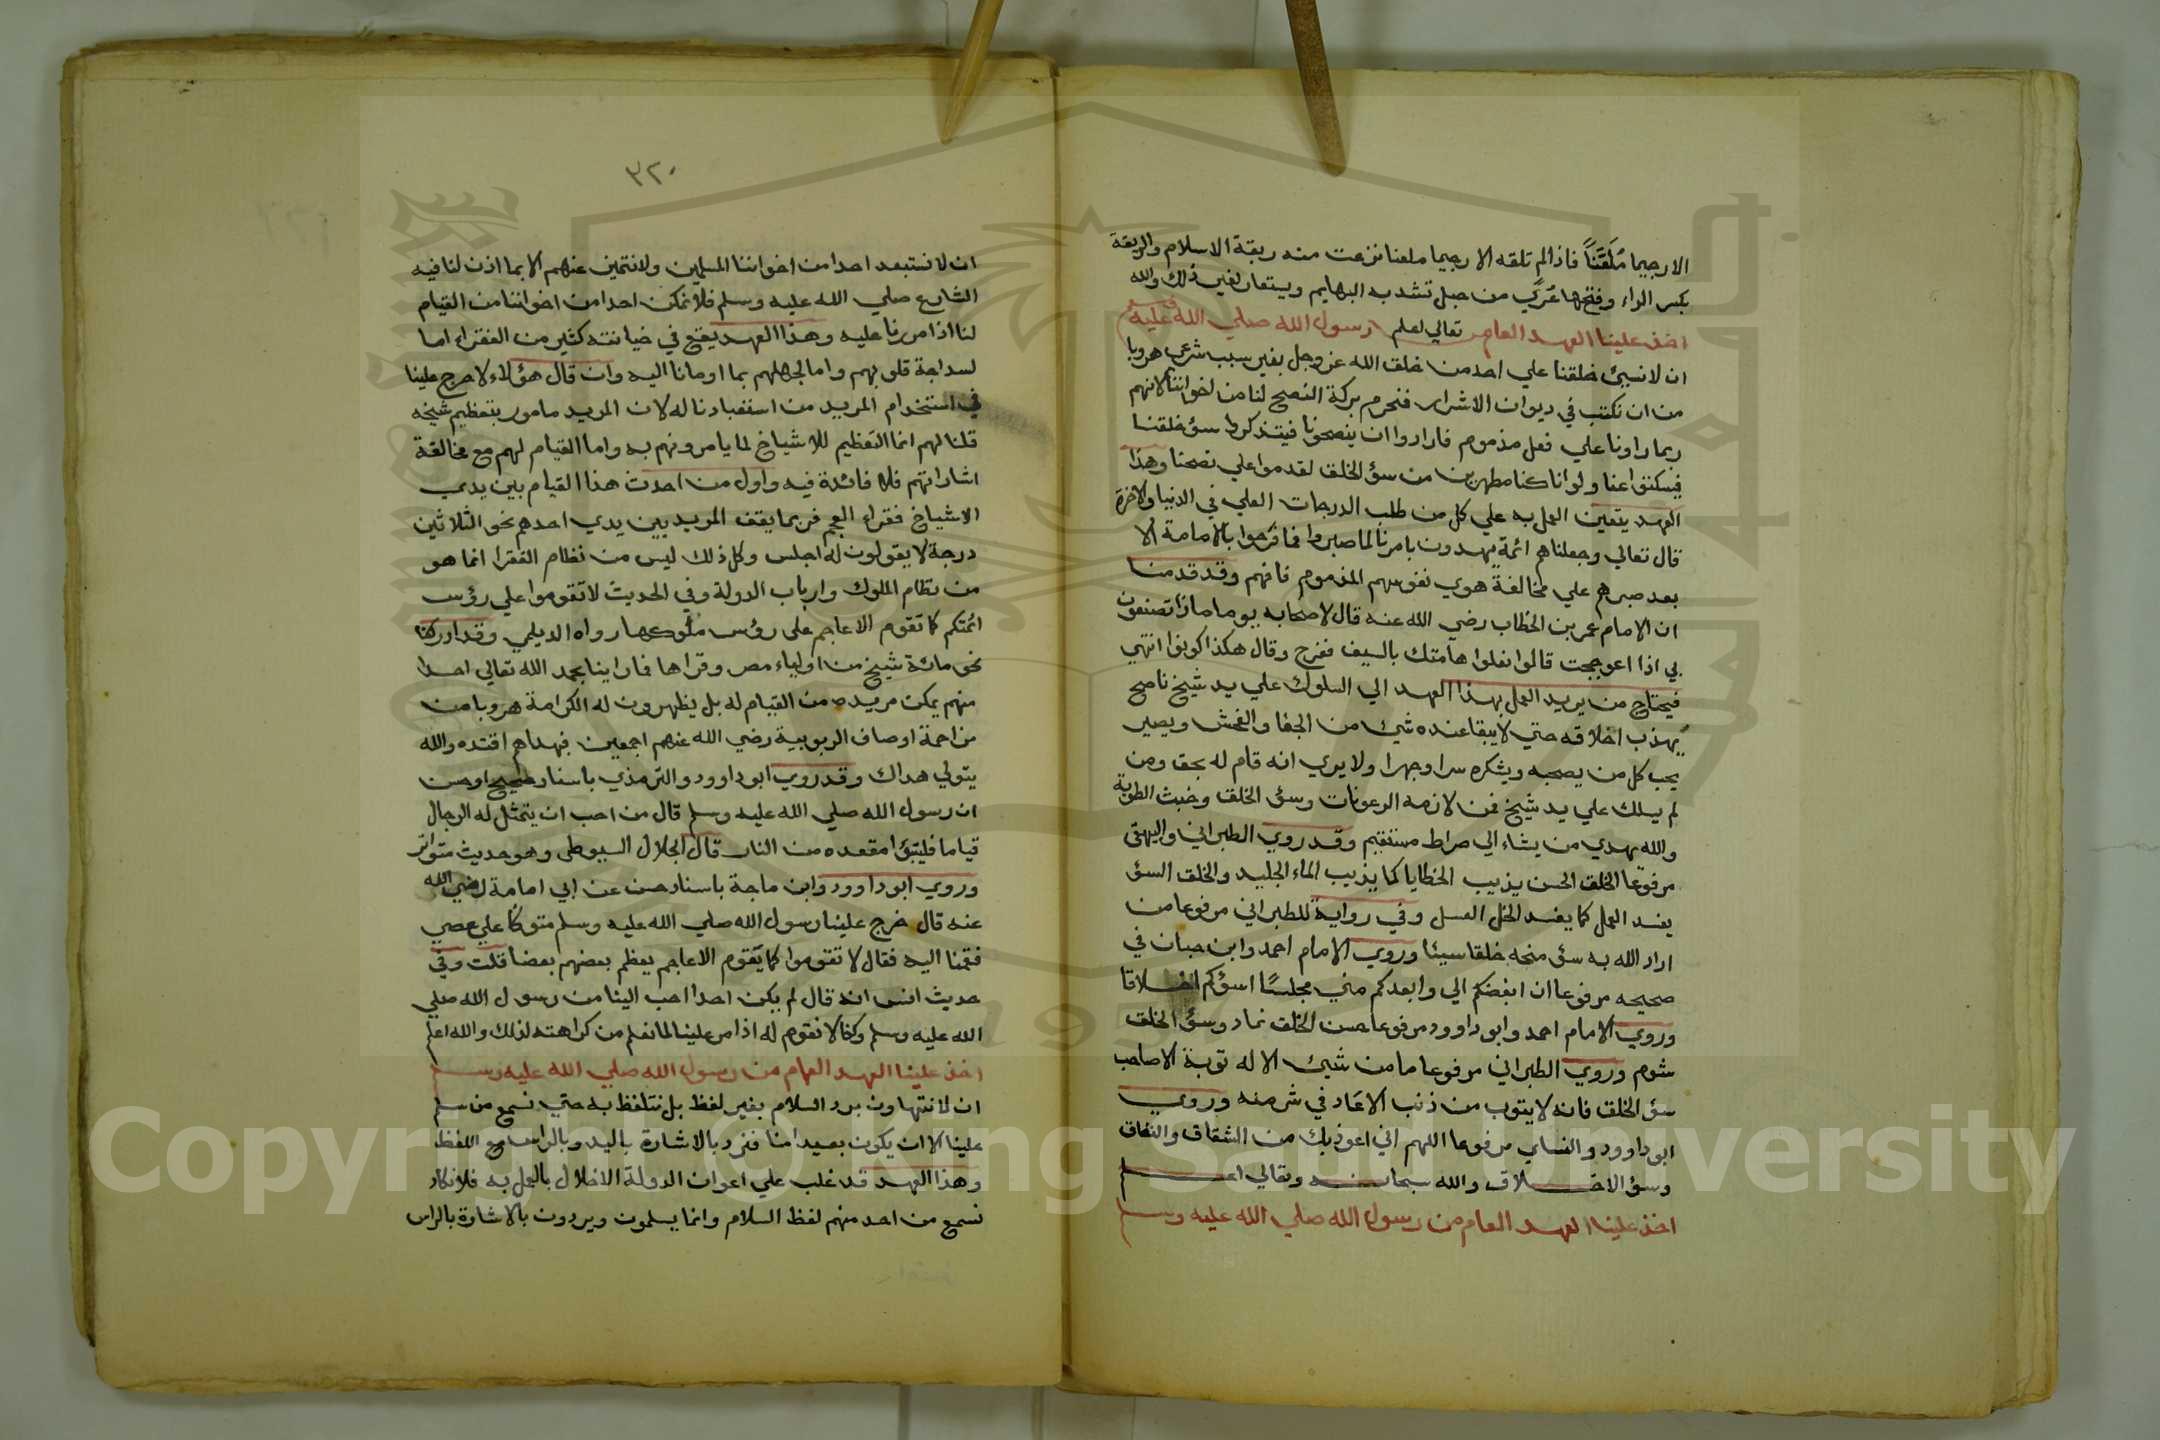 الا رجيما مُلَعَّنًا فاذا لم تلقه الا رجيما ملعنا نزعت منه ربقة الاسلام والربقة
بكسر الراء وفتحها عُرًى من حبل تشد به البهايم ويستعار لغير ذلك والله
تعالي اعلم اخذ علينا العهد العام من رسول الله صلي الله عليه وسلم
ان لا نسيئ خلقنا علي احد من خلق الله عز وجل بغير سبب شرعي هروبا
من ان نكتب في ديوان الاشرار فنحرم بركة النصح لنا من اخواننا لانهم
ربما راونا علي فعل مذموم فارادوا ان ينصحونا فيتذكروا سؤ خلقنا
فيسكتوا عنا ولو اننا كنا مطهرين من سؤ الخلق لقدموا علي نصحنا وهذا
العهد يتعين العمل به علي كل من طلب الدرجات العلي في الدنيا والاخرة
قال تعالي وجعلناهم ائمة يهدون بامرنا لما صبروا فما فرحوا بالامامة الا
بعد صبرهم علي مخالفة هوي نفوسهم المذموم فافهم وقد قدمنا
ان الامام عمر بن الخطاب رضي الله عنه قال لاصحابه يوما ماذا تصنعون
بي اذا اعوججت قالوا نعلوا هامتك بالسيف ففرح وقال هكذا كونوا انتهي
فيحتاج من يريد العمل بهذا العهد الي السلوك علي يد شيخ ناصح
يهذب اخلاقه حتي لا يبقا عنده شيئ من الجفا والفحش ويصير
يحب كل من يصحبه ويشكره سرا وجهرا ولا يري انه قام له بحق ومن
لم يسلك علي يد شيخ فمن لازمه الرعونات وسؤ الخلق وخبث الطوية
والله يهدي من يشاء الي صراط مستقيم وقد روي الطبراني والبيهقي
مرفوعا الخلق الحسن يذيب الخطايا كما يذيب الماء الجليد والخلق السئ
يفسد العمل كما يفسد الخل العسل وفي رواية للطبراني مرفوعا من
اراد الله به سؤ منحه خلقا سيئا وروي الامام احمد وابن حبان في
صحيحه مرفوعا ان ابغضكم الي وابعدكم مني مجلسًا اسؤكم اخلاقا
وروي الامام احمد وابو داوود مرفوعا حسن الخلق نماء وسؤ الخلق
شوم وروي الطبراني مرفوعا ما من شيئ الا له توبة الا صاحب
سؤ الخلق فانه لا يتوب من ذنب الا عاد في شر منه وروي
ابو داوود والنساي مرفوعا اللهم اني اعوذ بك من الشقاق والنفاق
وسؤ الاخلاق والله سبحانه وتعالي اعلم
اخذ علينا العهد العام من رسول الله صلي الله عليه وسلم
٣٢٠
ان لا نستبعد احدا من اخواننا المسلمين ولا نتميز عنهم الا بما اذن لنا فيه
الشارع صلي الله عليه وسلم فلا نمكن احدا من اخواننا من القيام
لنا اذا مررنا عليه وهذا العهد يقع في خيانته كثير من الفقراء اما
لسداجة قلوبهم واما لجهلهم بما اومانا اليه وان قال هؤلاء لا حرج علينا
في استخدام المريد من استعبادنا له لان المريد مامور بتعظيم شيخه
قلنا لهم انما التعظيم للاشياخ لما يامرونهم به واما القيام لهم مع مخالفة
اشاراتهم فلا فائدة فيه واول من احدث هذا القيام بين يدي
الاشياخ فقراء العجم فربما يقف المريد بين يدي احدهم نحو الثلاثين
درجة لا يقولون له اجلس وكل ذلك ليس من نظام الفقرا انما هو
من نظام الملوك وارباب الدولة وفي الحديث لا تقوموا علي رؤس
ائمتكم كما تقوم الاعاجم علي رؤس ملوكها رواه الديلمي وقد ادركنا
نحو مائة شيخ من اولياء مصر وقراها فما راينا بحمد الله تعالي احدا
منهم يمكن مريده من القيام له بل يظهرون له الكراهة هروبا من
مزاحمة اوصاف الربوبية رضي الله عنهم اجمعين فبهداهم اقتده والله
يتولي هداك وقد روي ابو داوود والترمذي باسناد صحيح او حسن
ان رسول الله صلي الله عليه وسلم قال من احب ان يتمثل له الرجال
قياما فليتبؤا مقعده من النار قال الجلال السيوطي وهو حديث متواتر
وروي ابو داوود وابن ماجة باسناد حسن عن ابي امامة رضي الله
عنه قال خرج علينا رسول الله صلي الله عليه وسلم متوكأ علي عصي
فقمنا اليه فقال لا تقوموا كما يَقوم الاعاجم يعظم بعضهم بعضا قلت وفي
حديث انس انه قال لم يكن احدا احب الينا من رسول الله صلي
الله عليه وسلم وكنا لا نقوم له اذا مر علينا لما نعلم من كراهته لذلك والله اعلم
اخذ علينا العهد العام من رسول الله صلي الله عليه وسلم
ان لا نتهاون برد السلام بغير لفظ بل نتلفظ به حتي نسمع من سلم
علينا الا ان يكون بعيدا منا فنرد بالاشارة باليد وبالراس مع اللفظ
وهذا العهد قد غلب علي اعوان الدولة الاخلال بالعمل به فلا نكاد
نسمع من احد منهم لفظ السلام وانما يسلمون ويردون بالاشارة بالراس
Copyright © King Saud University